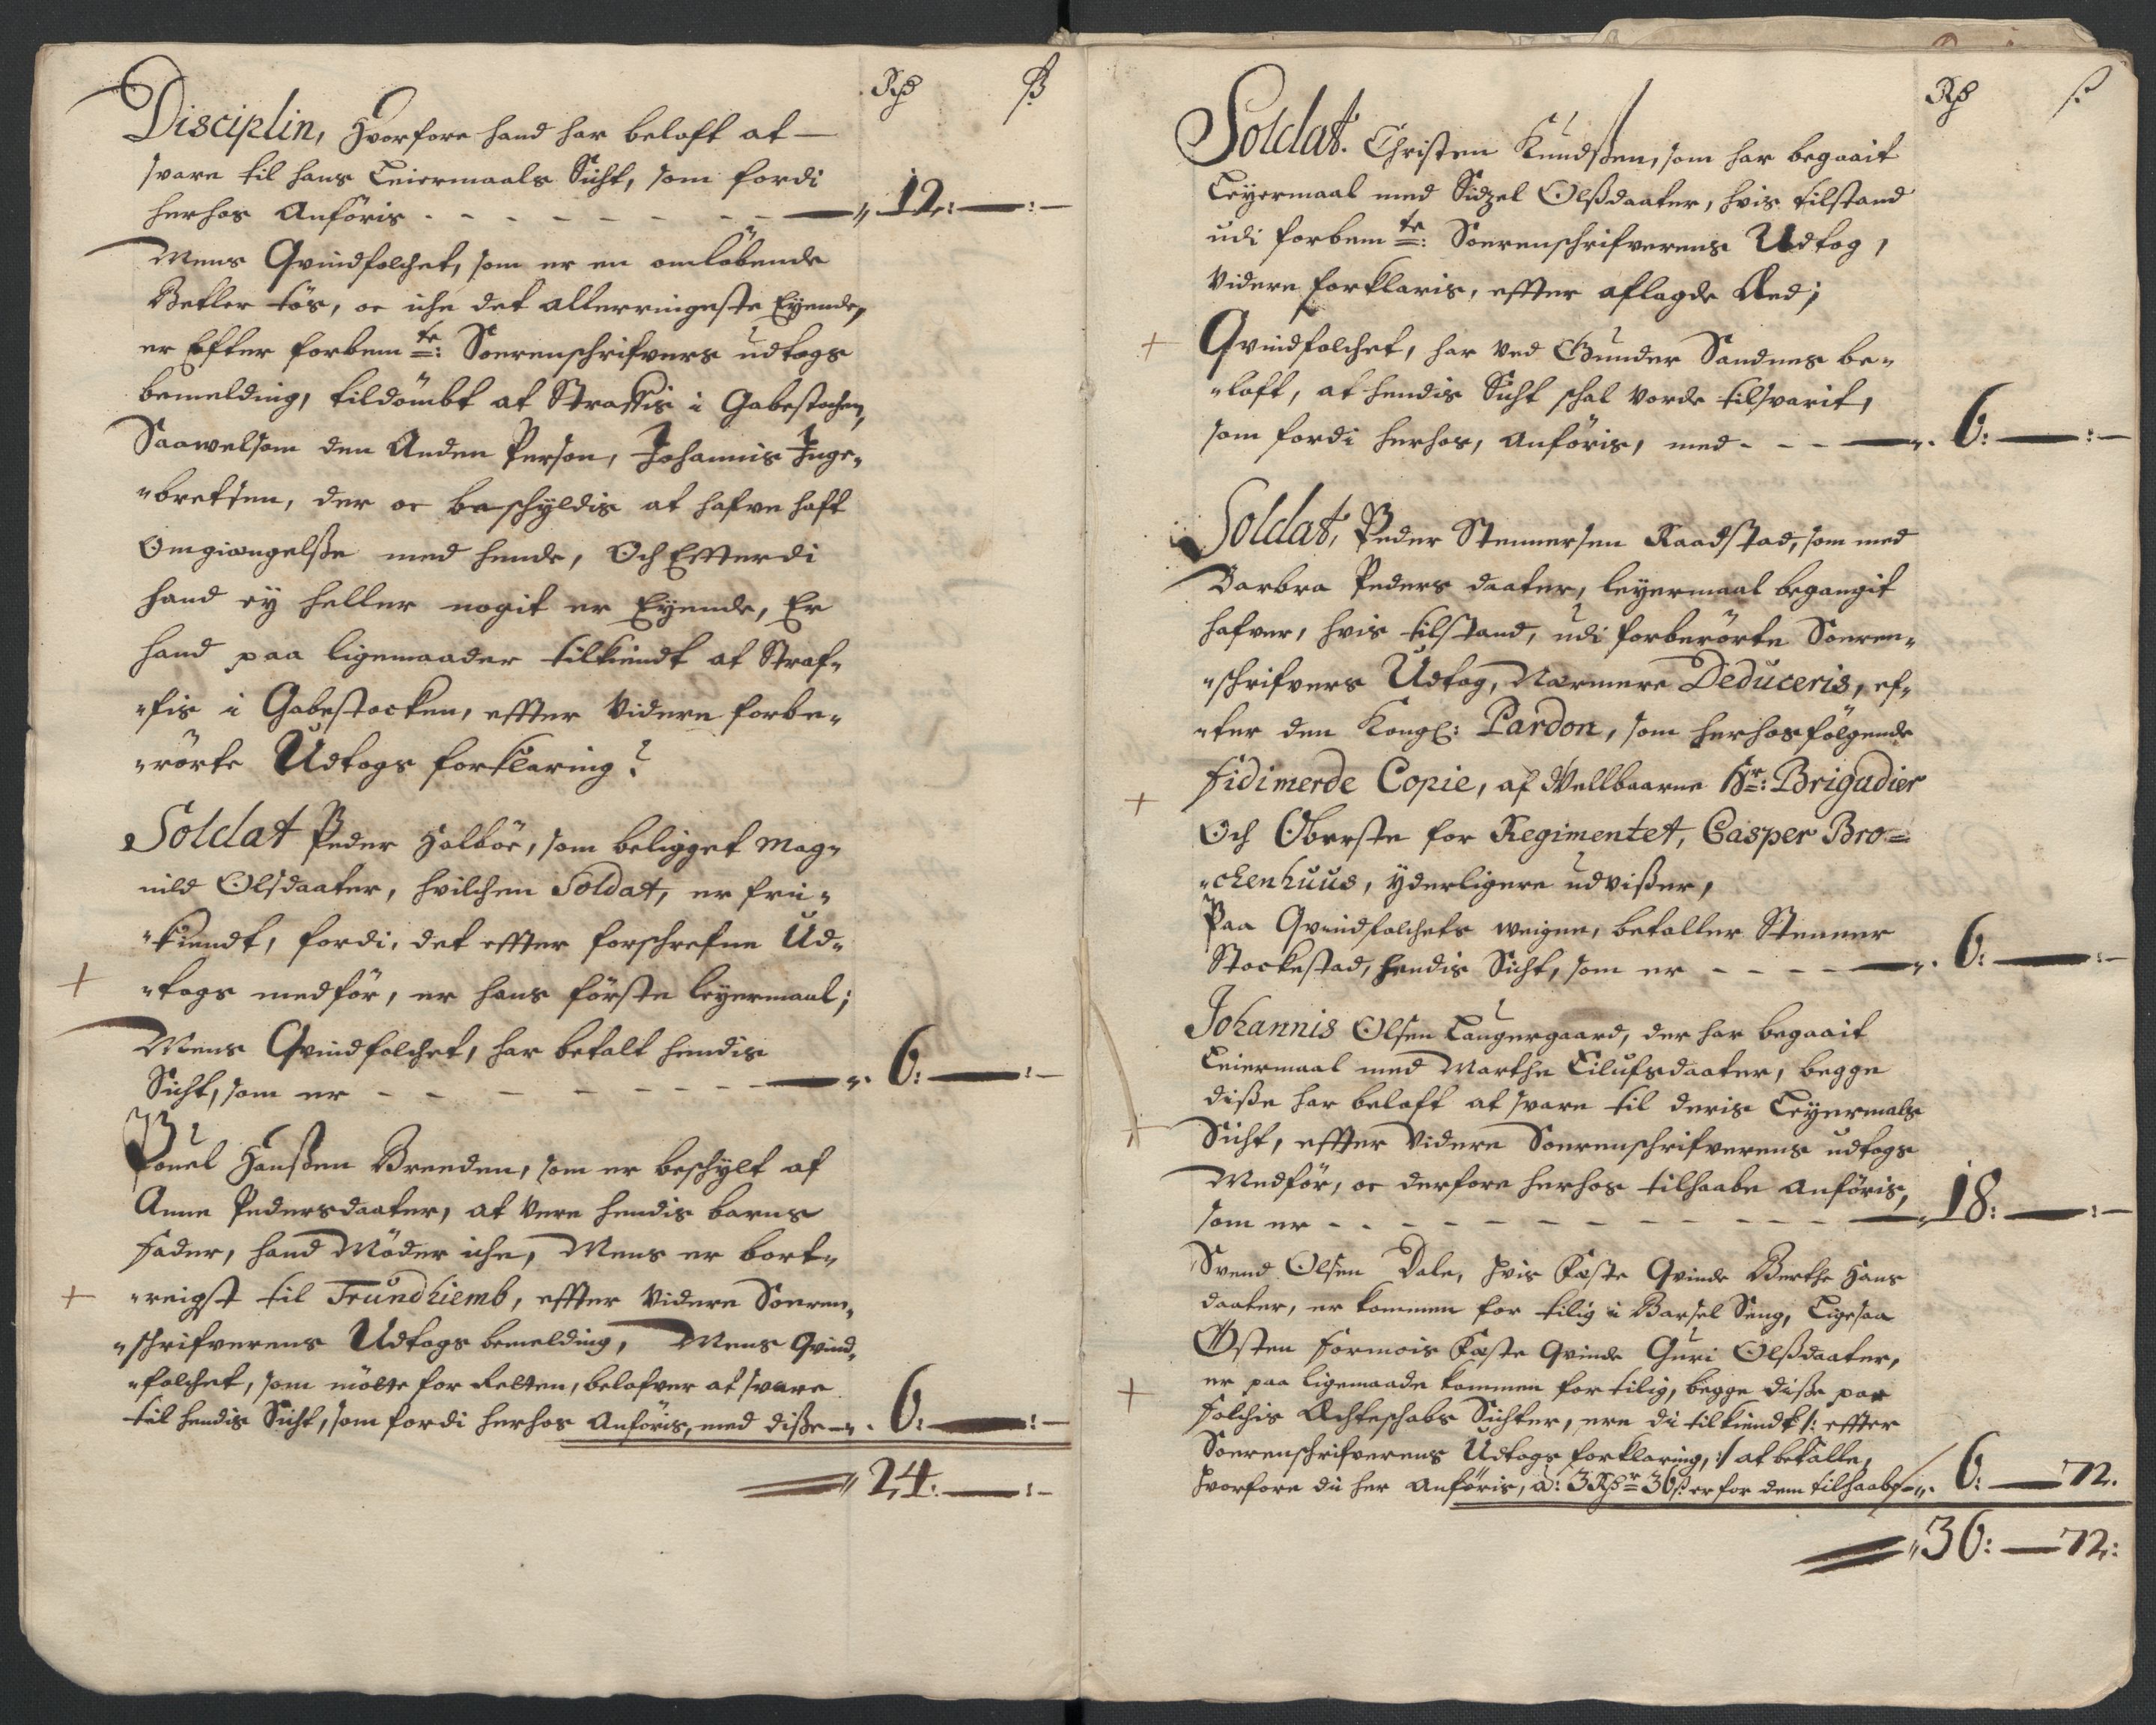 Rdr ß
Disciplin, Hvorfore hand har beloft at
svare til hans Leiermaals Sicht, som fordi
herhos Anföris - - - - - - - - „ 12: — : —
Mens Qvindfolchet, som er en omløbende
Betler tös, oc iche det allerringeste Eyende,
er Efter forbemte: Sorenschrifvers udtogs
bemelding, tildömbt at Straffis i Gabestochen,
Saawelsom den Anden Person, Johannis Inge„
„bretsen, der oc beschyldis at hafve haft
Omgiængelsse med hende, Och Efterdi
hand ey heller nogit er Eyende, Er
hand paa ligemaader tilkiendt at Straf„
„fis i Gabestocken, effter Videre forbe„
„rörte Udtogs forklaring.
Soldat Peder Holböe, som beligget Mag„
nild Olsdaater, hvilchen Soldat, er frii„
„kiendt, fordi, det effter forschrefne Ud„
+ „togs medför, er hans förste leyermaal;
Mens Qvindfolchet, har betalt hendis
Sicht, som er - - - - - - „. 6: — : —
Pouel Hanßen Breeden, som er beschylt af
Anne Pedersdaater, at vere hendis barns
Fader, hand Möder iche, Mens er bort„
+ „reigst til Trundhiemb, effter Videre Soren„
„schrifverens Udtogs bemelding, Mens Qvind„
„folchet, som mötte for Retten, belofver at svare
til hendis Sicht, som fordi herhos Anföris, med disse „. 6: — : —
„ 24: — : —
Rdr ß
Soldat. Christen Knudßen, som har begaait
Leyermaal med Sidzel Olßdaater, hvis tilstand
udi forbemte: Sorenschrifverens Udtog,
Videre forklaris, effter aflagde Aed;
+ Qvindfolchet, har ved Gunder Sandnes be„
„loft, at hendis Sicht schal vorde tilsvarit,
som fordi herhos, Anföris, med - - - „. 6: — : —
Soldat, Peder Stennersen Raadstad, som med
Barbra Peders daater, leyermaal begangit
hafver, hvis tilstand, udi forberörte Soren„
„schrifvers Udtog, Nærmere Deduceris, ef„
„ter den Kongl: Pardon, som herhosfölgende
+ Fidimerde Copie, af Wellbaarne Hr: Brigadier
Och Oberste for Regimentet, Casper Bro=
„chenhuus, yderligere udvißer,
Paa Qvindfolchets weigne, betaller Stenner
Stockestad, hendis Sicht, som er - - - - „. 6: — : —
Johannis Olsen Laugergaard, der har begaait
Leiermaal med Marthe Eilufsdaater, begge
diße har beloft at svare til deris Leyermals
+ Sicht, effter Videre Sorenschrifverens udtogs
Medför, oc derfore herhos tilhaabe Anföris,
som er - - - - - - - - - - „ 18: — : —
Svend Olsen Dale, hvis Fæste Qvinde Berthe Hans
daater, er kommen for tilig i Barsel Seng, Ligesaa
Østen Formois Fæste Qvinde Guri Olßdaater,
+ er paa ligemaade kommen for tilig, begge diße par
Folchis Achteschabs Sichter, ere di tilkiendt /: effter
Sorenschrifverens Udtogs forklaring, :/ at betalle,
hvorfore di her Anföris, a: 3 Rdr 36 ß er for dem tilhaabe „. 6: — 72.
„ 36: — 72: